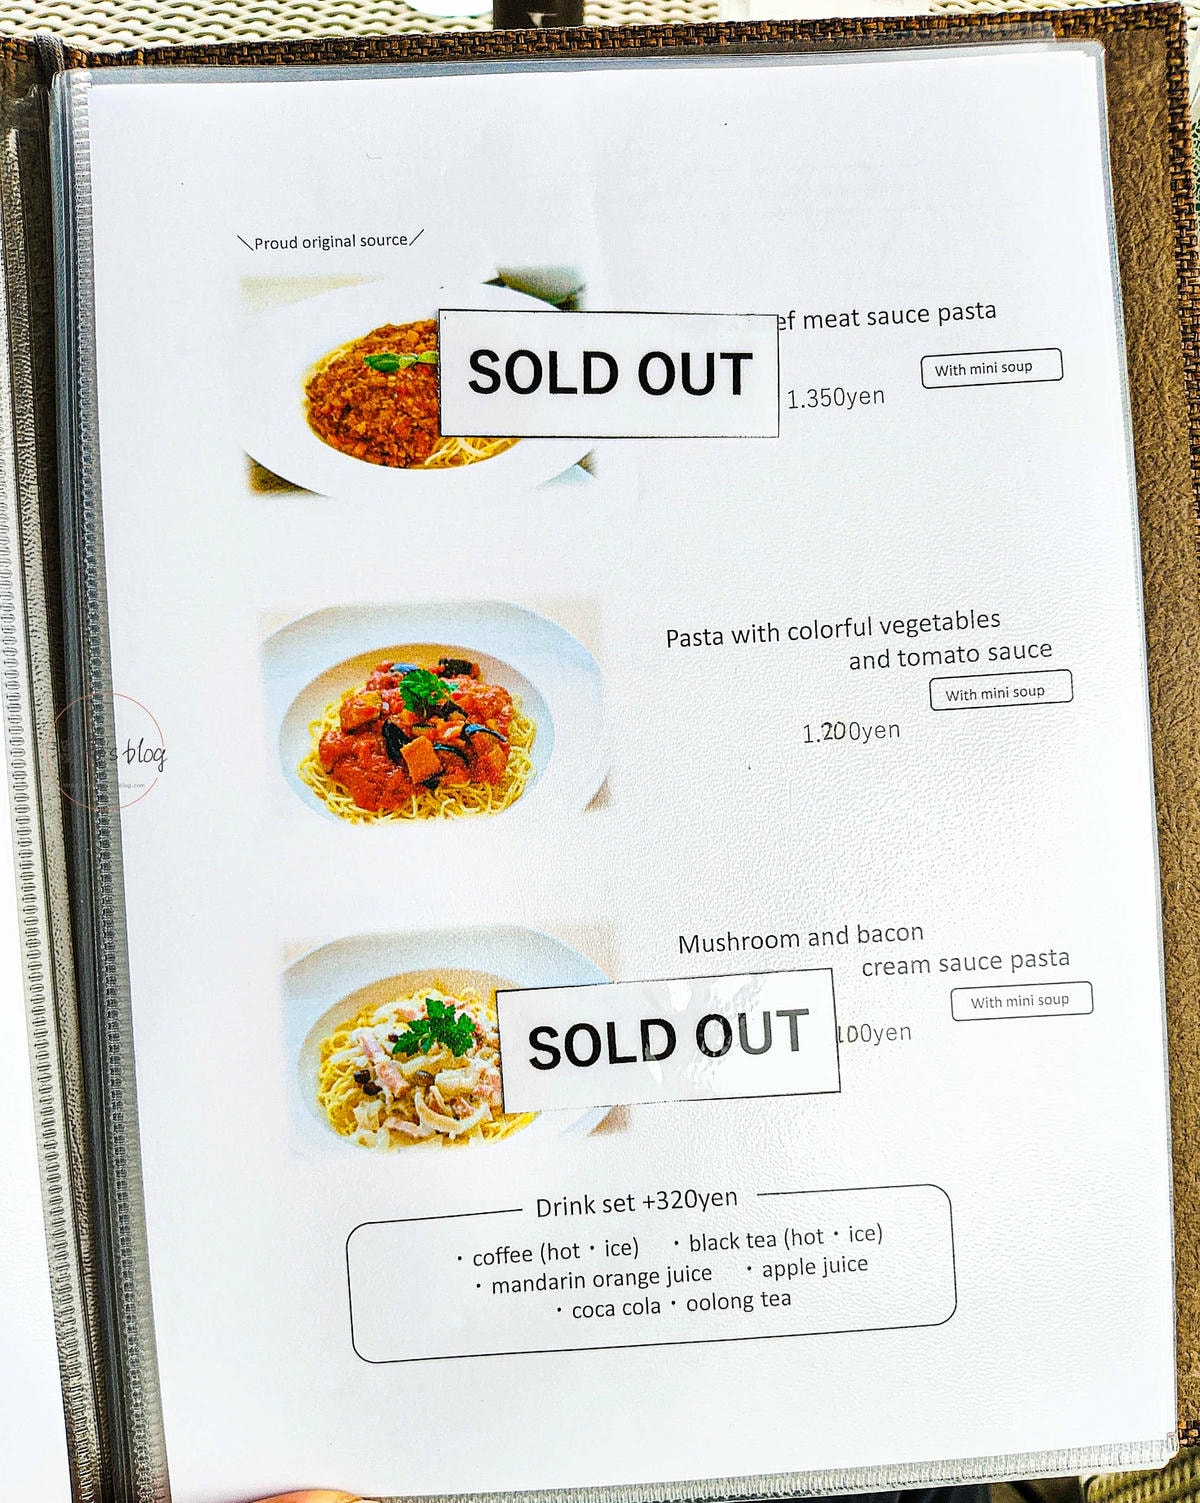 ＼Proud original source／
ef meat sauce pasta
SOLD OUT
With mini soup
1.350yen
Pasta with colorful vegetables
and tomato sauce
With mini soup
1.200yen
s blog
Mushroom and bacon
cream sauce pasta
With mini soup
SOLD OUT
100yen
Drink set +320yen
・coffee (hot・ice) ・black tea (hot・ice)
・mandarin orange juice ・apple juice
・coca cola・oolong tea